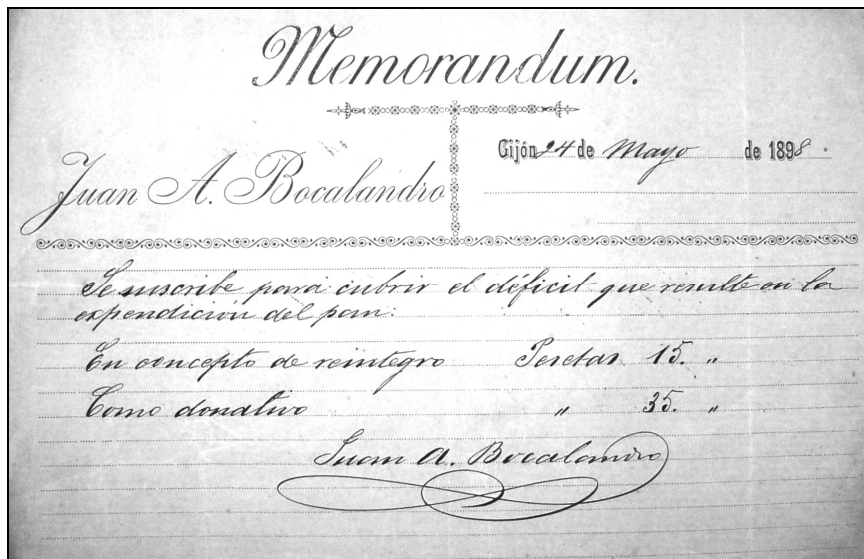 Memorandum.
Juan A. Bocalandro
Gijón 24 de Mayo de 1898
Se suscribe para cubrir el déficit que resulte en la
expendición del pan:
En concepto de reintegro Pesetas 15. "
Como donativo " 35. "
Juan A. Bocalandro